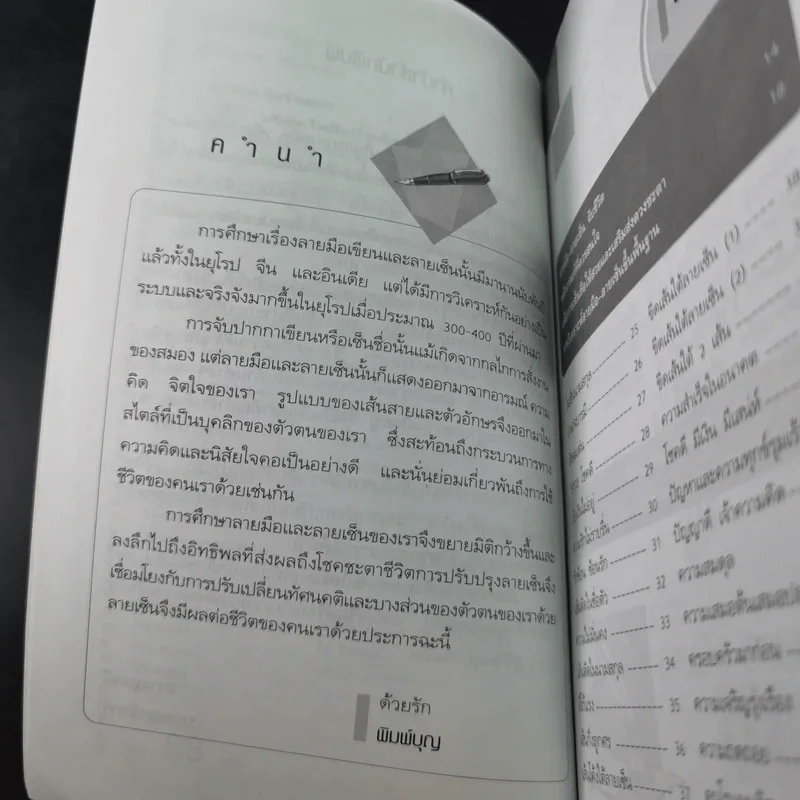 คำนำ
การศึกษาเรื่องลายมือเขียนและลายเซ็นนั้นมีมานานนับพันปี
แล้วทั้งในยุโรป จีน และอินเดีย แต่ได้มีการวิเคราะห์กันอย่างเป็น
ระบบและจริงจังมากขึ้นในยุโรปเมื่อประมาณ 300-400 ปีที่ผ่านมา
การจับปากกาเขียนหรือเซ็นชื่อนั้นแม้เกิดจากกลไกการสั่งงาน
ของสมอง แต่ลายมือและลายเซ็นนั้นก็แสดงออกมาจากอารมณ์ ความ
คิด จิตใจของเรา รูปแบบของเส้นสายและตัวอักษรจึงออกมาใน
สไตล์ที่เป็นบุคลิกของตัวตนของเรา ซึ่งสะท้อนถึงกระบวนการทาง
ความคิดและนิสัยใจคอเป็นอย่างดี และนั่นย่อมเกี่ยวพันถึงการใช้
ชีวิตของคนเราด้วยเช่นกัน
การศึกษาลายมือและลายเซ็นของเราจึงขยายมิติกว้างขึ้นและ
ลงลึกไปถึงอิทธิพลที่ส่งผลถึงโชคชะตาชีวิตการปรับปรุงลายเซ็นจึง
เชื่อมโยงกับการปรับเปลี่ยนทัศนคติและบางส่วนของตัวตนของเราด้วย
ลายเซ็นจึงมีผลต่อชีวิตของคนเราด้วยประการฉะนี้
ด้วยรัก
พิมพ์บุญ
14
18
25 ขีดเส้นใต้ลายเซ็น (1)
26 ขีดเส้นใต้ลายเซ็น (2)
27 ขีดเส้นใต้ 2 เส้น
28 ความสำเร็จในอนาคต
29 โชคดี มีเงิน มีเสน่ห์
30 ปัญหาและความทุกข์รุมเร้า
31 ปัญญาดี เจ้าความคิด
32 ความสมดุล
33
34 ครอบครัวมาก่อน
35 ความเจริญรุ่งเรือง
36 ความถดถอย
37